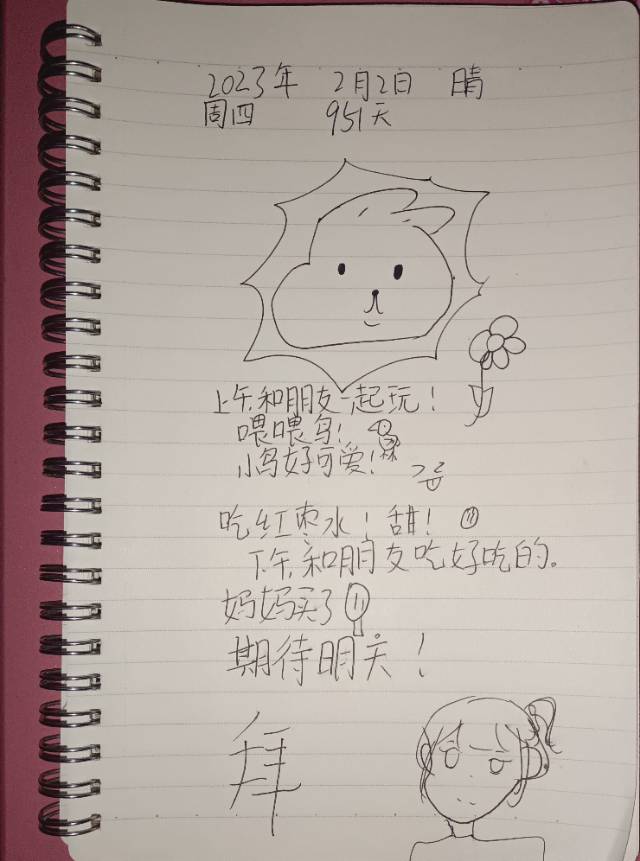 2023年 2月2日 晴
周四 951天
上午和朋友一起玩!
喂喂鸟!
小鸟好可爱!
吃红枣水!甜!
下午和朋友吃好吃的.
妈妈买了
期待明天!
拜